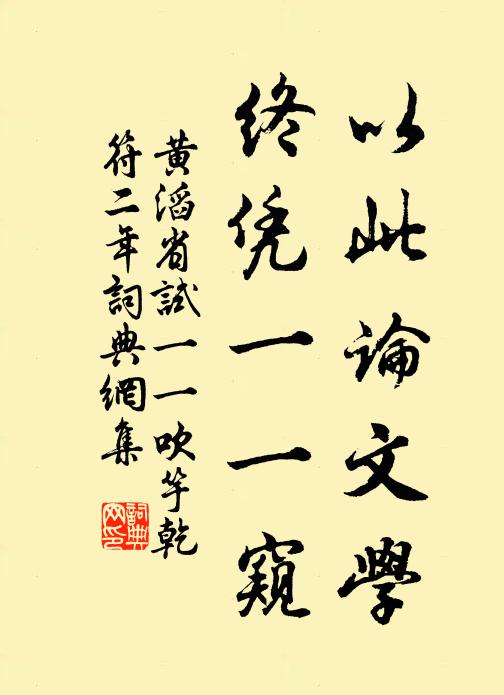 以此論文學
終凭一一窺
黃滔省試一一吹竽乾
符二年詞典網集
詞典
网印